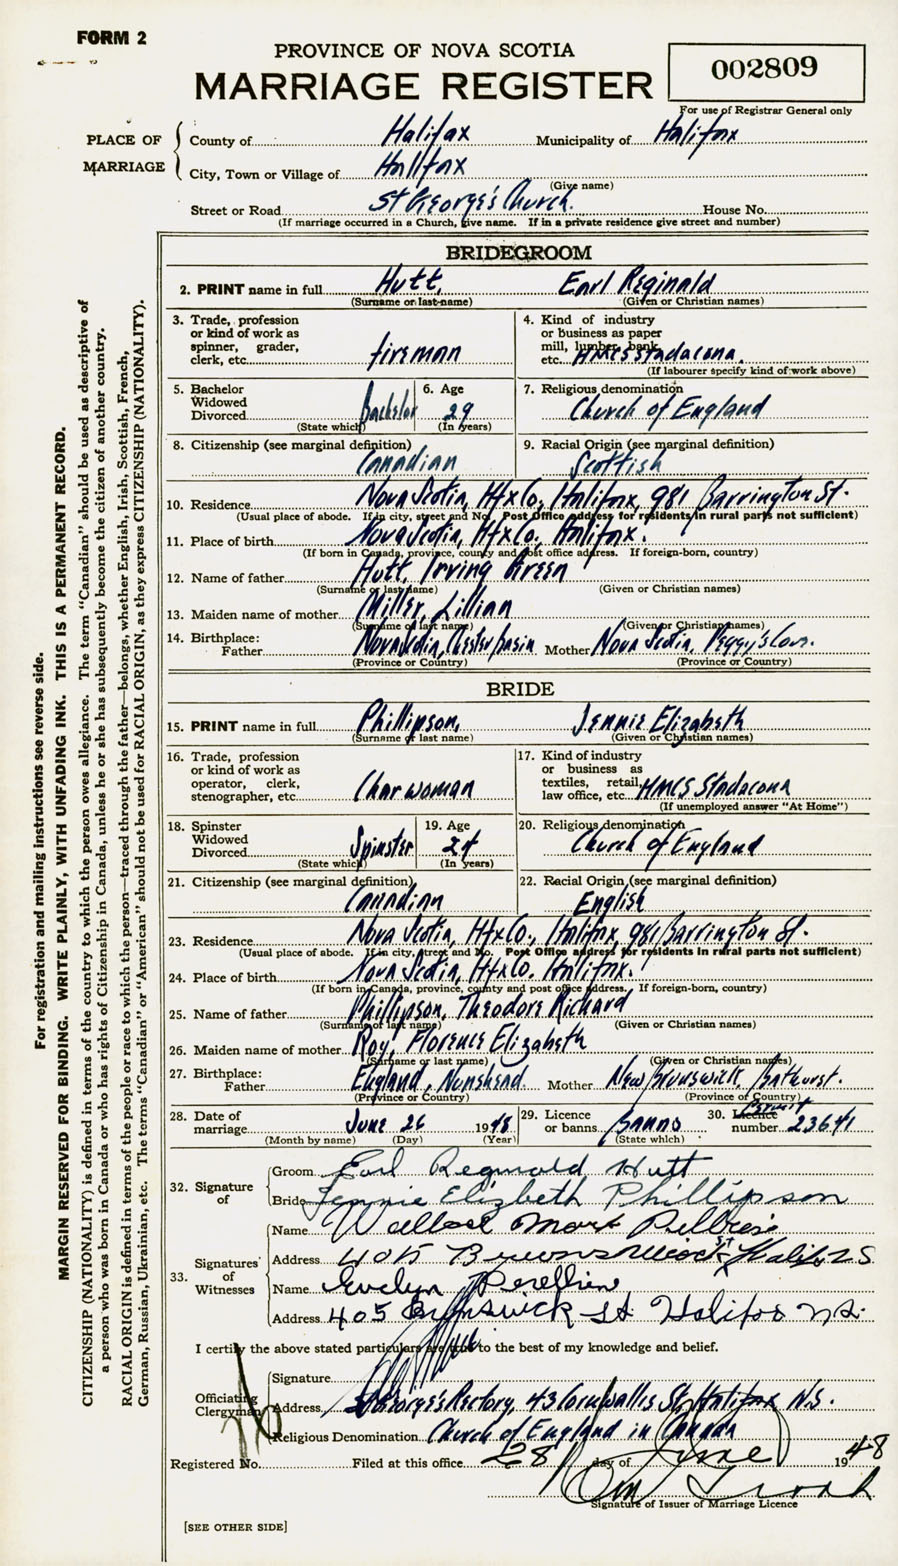 FORM 2
PROVINCE OF NOVA SCOTIA
MARRIAGE REGISTER
002809
For use of Registrar General only
PLACE OF MARRIAGE
County of Halifax Municipality of Halifax
City, Town or Village of Halifax
(Give name)
Street or Road St George's Church. House No.
(If marriage occurred in a Church, give name. If in a private residence give street and number)
BRIDEGROOM
2. PRINT name in full Hutt, Earl Reginald
(Surname or last name) (Given or Christian names)
3. Trade, profession or kind of work as spinner, grader, clerk, etc. fireman
4. Kind of industry or business as paper mill, lumber, bank, etc. HMCS Stadacona.
(If labourer specify kind of work above)
5. Bachelor Widowed Divorced Bachelor
(State which)
6. Age 29
(In years)
7. Religious denomination
Church of England
8. Citizenship (see marginal definition)
Canadian
9. Racial Origin (see marginal definition)
Scottish
10. Residence Nova Scotia, Hfx Co, Halifax, 981 Barrington St.
(Usual place of abode. If in city, street and No. Post Office address for residents in rural parts not sufficient)
11. Place of birth Nova Scotia, Hfx Co, Halifax.
(If born in Canada, province, county and post office address. If foreign-born, country)
12. Name of father Hutt, Irving Green
(Surname or last name) (Given or Christian names)
13. Maiden name of mother Miller, Lillian
(Surname or last name) (Given or Christian names)
14. Birthplace:
Father Nova Scotia, Chester Basin Mother Nova Scotia, Peggy's Cove.
(Province or Country) (Province or Country)
BRIDE
15. PRINT name in full Phillipson, Jennie Elizabeth
(Surname or last name) (Given or Christian names)
16. Trade, profession or kind of work as operator, clerk, stenographer, etc. Charwoman
17. Kind of industry or business as textiles, retail, law office, etc. HMCS Stadacona
(If unemployed answer "At Home")
18. Spinster Widowed Divorced Spinster
(State which)
19. Age 24
(In years)
20. Religious denomination
Church of England
21. Citizenship (see marginal definition)
Canadian
22. Racial Origin (see marginal definition)
English
23. Residence Nova Scotia, Hfx Co, Halifax, 981 Barrington St.
(Usual place of abode. If in city, street and No. Post Office address for residents in rural parts not sufficient)
24. Place of birth Nova Scotia, Hfx Co. Halifax.
(If born in Canada, province, county and post office address. If foreign-born, country)
25. Name of father Phillipson, Theodore Richard
(Surname or last name) (Given or Christian names)
26. Maiden name of mother Roy, Florence Elizabeth
(Surname or last name) (Given or Christian names)
27. Birthplace:
Father England, Nunshead. Mother New Brunswick, Bathurst.
(Province or Country) (Province or Country)
28. Date of marriage June 26 1948
(Month by name) (Day) (Year)
29. Licence or banns Banns
(State which)
30. Licence Permit number 23641
32. Signature of
Groom Earl Reginald Hutt
Bride Jennie Elizbeth Phillipson
33. Signatures' of Witnesses
Name
Address 405 St Halifax
Name Evelyn
Address 405 Brunswick St Halifax N.S.
I certify the above stated particulars are true to the best of my knowledge and belief.
Officiating Clergyman
Signature
Address St George's Rectory, 43 Cornwallis St, Halifax N.S.
Religious Denomination Church of England in Canada
Registered No. Filed at this office 28 day of June 1948
Signature of Issuer of Marriage Licence
[SEE OTHER SIDE]
For registration and mailing instructions see reverse side.
MARGIN RESERVED FOR BINDING. WRITE PLAINLY, WITH UNFADING INK. THIS IS A PERMANENT RECORD.
CITIZENSHIP (NATIONALITY) is defined in terms of the country to which the person owes allegiance. The term "Canadian" should be used as descriptive of
a person who was born in Canada or who has rights of Citizenship in Canada, unless he or she has subsequently become the citizen of another country.
RACIAL ORIGIN is defined in terms of the people or race to which the person—traced through the father—belongs, whether English, Irish, Scottish, French,
German, Russian, Ukrainian, etc. The terms "Canadian" or "American" should not be used for RACIAL ORIGIN, as they express CITIZENSHIP (NATIONALITY).